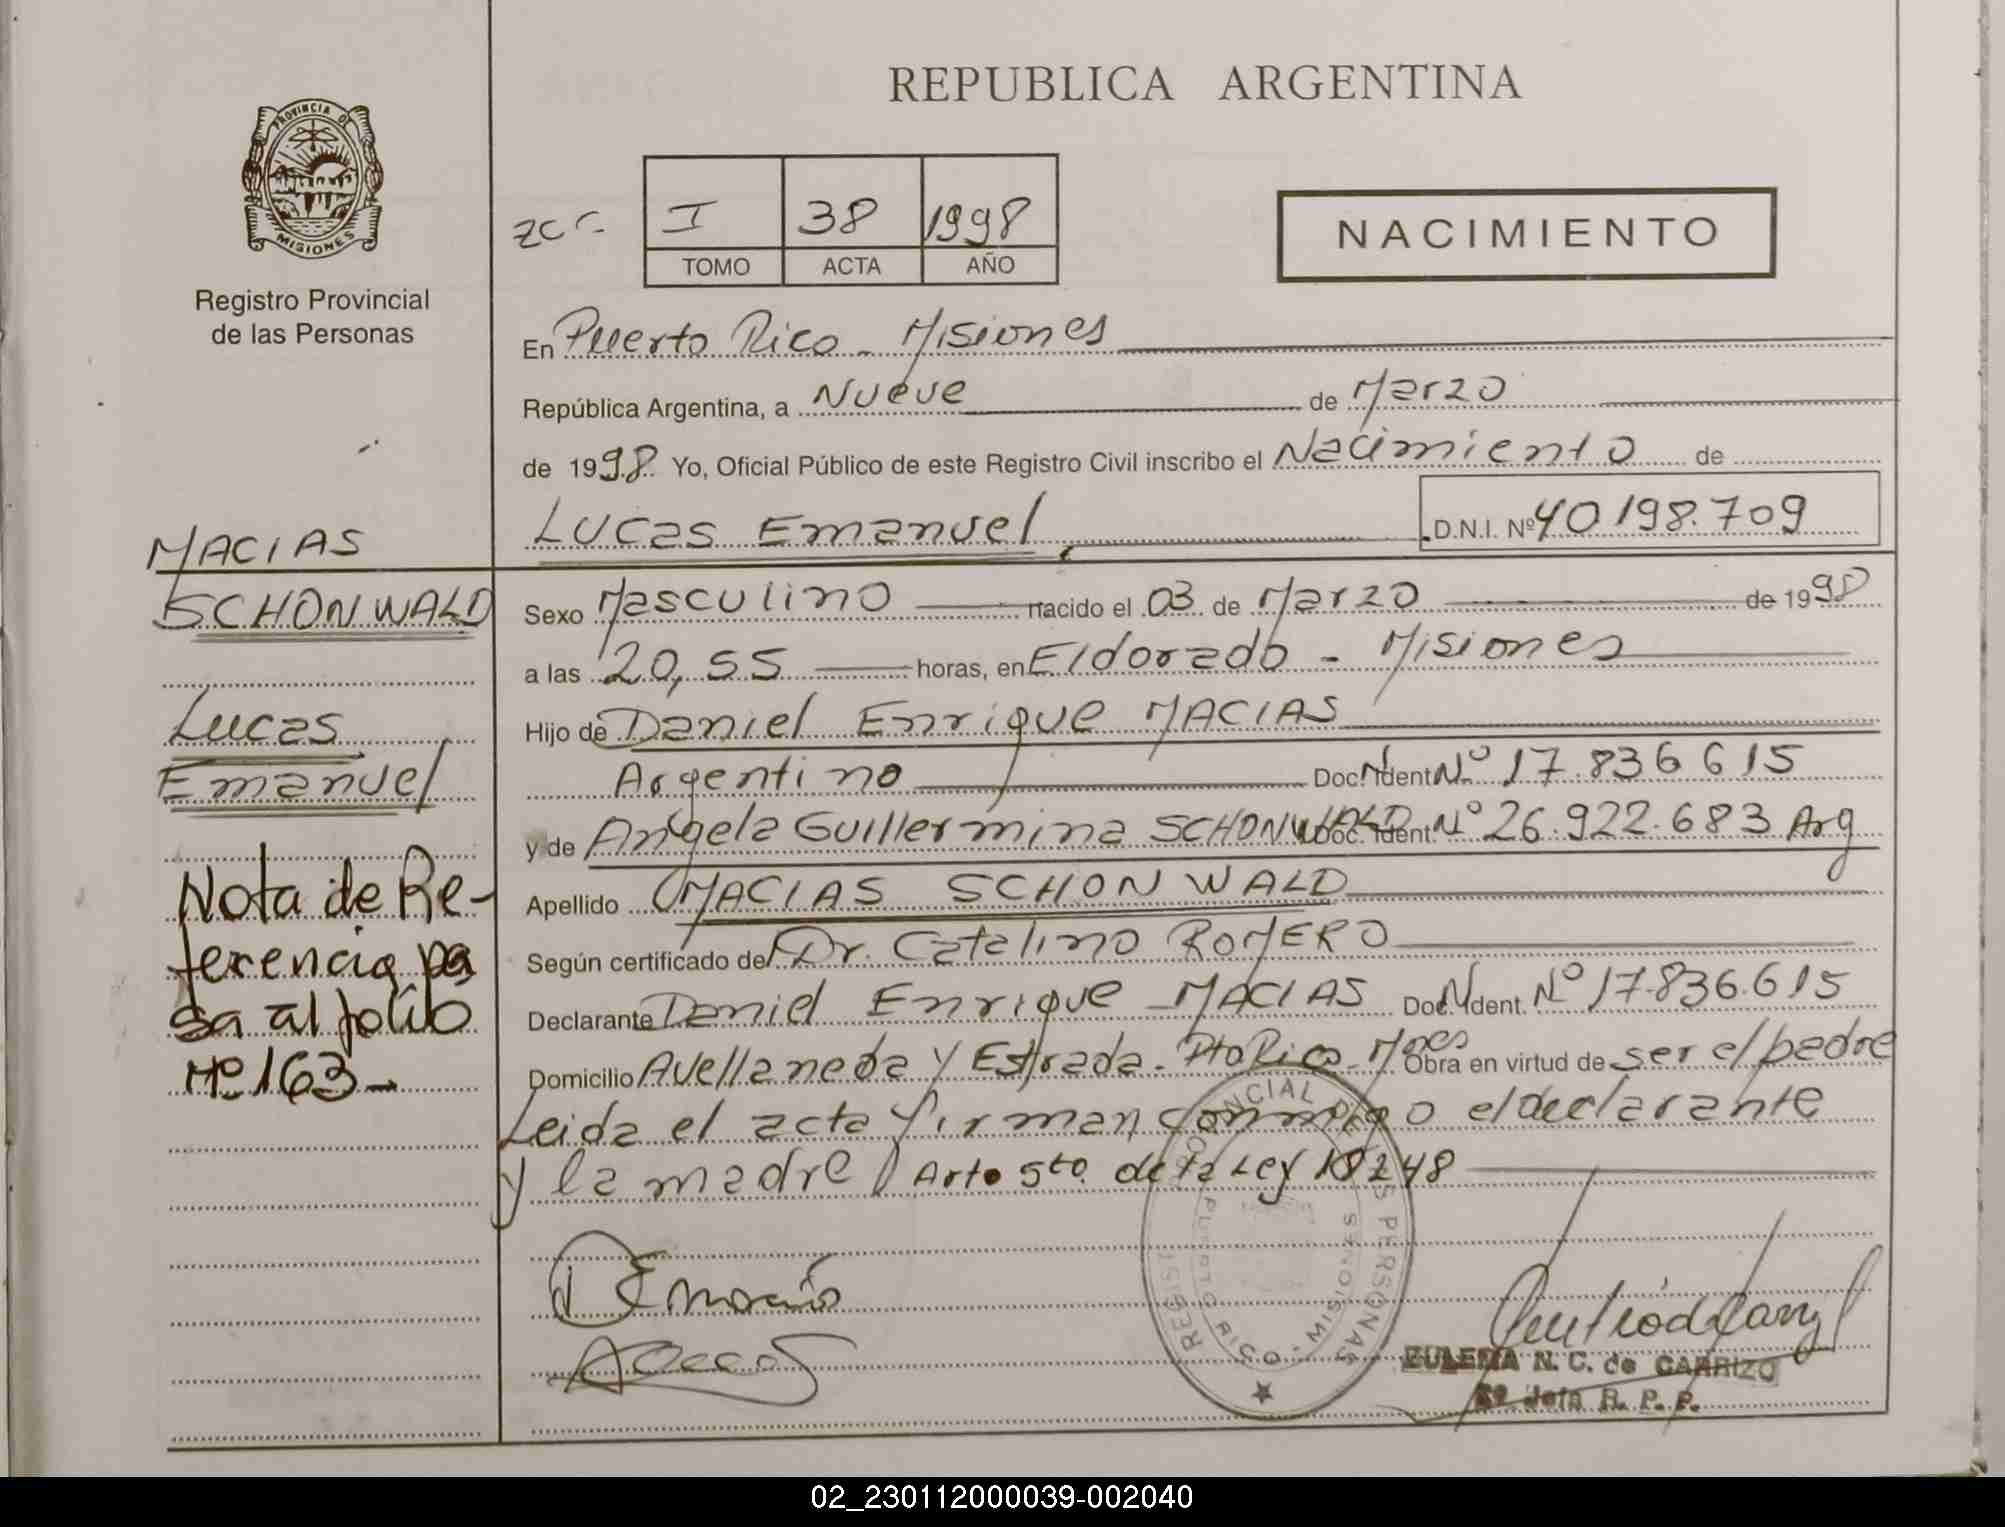 PROVINCIA DE
MISIONES
Registro Provincial
de las Personas
REPUBLICA ARGENTINA
I 38 1998
TOMO ACTA AÑO
NACIMIENTO
En Puerto Rico - Misiones
República Argentina, a Nueve de Marzo
de 1998. Yo, Oficial Público de este Registro Civil inscribo el Nacimiento de
Lucas Emanuel D.N.I. Nº 40198.709
MACIAS
SCHONWALD
Lucas
Emanuel
Nota de Re-
ferencia pa
sa al folio
Nº 163-
Sexo Masculino nacido el 03 de Marzo de 1998
a las 20,55 horas, en Eldorado - Misiones
Hijo de Daniel Enrique MACIAS
Argentino Doc. Ident. Nº 17.836615
y de Angela Guillermina SCHONWALD Doc. Ident. Nº 26.922.683 Arg
Apellido MACIAS SCHONWALD
Según certificado de Dr. Catalino ROMERO
Declarante Daniel Enrique MACIAS Doc. Ident. Nº 17.836.615
Domicilio Avellaneda y Estrada - Pto Rico - Mnes Obra en virtud de ser el padre
Leida el acta firman conmigo el declarante
y la madre Arto 5to. de la Ley 18248
REGISTRO PROVINCIAL DE LAS PERSONAS
PUERTO RICO - MISIONES
ZULEMA N. C. de CARRIZO
Jefa R. P. P.
02_230112000039-002040